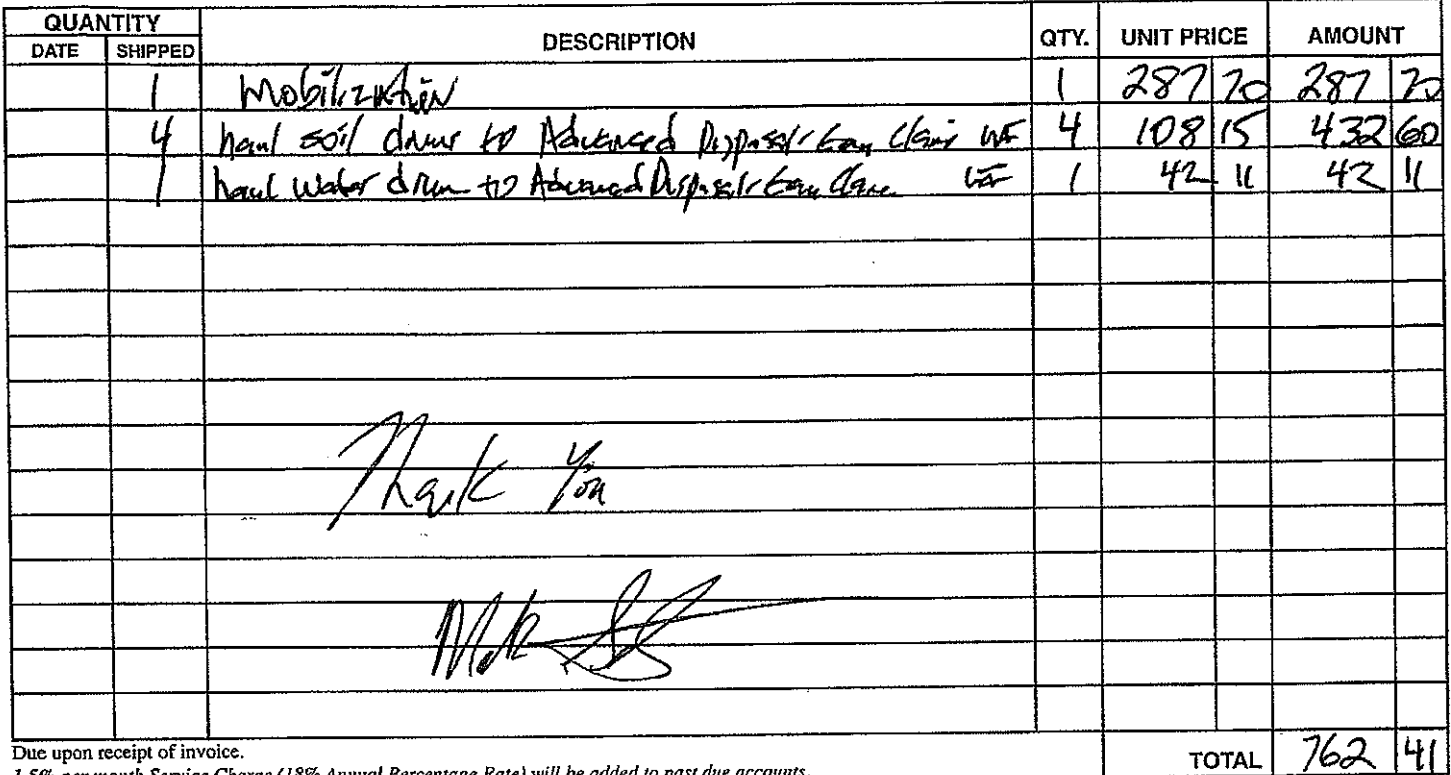 QUANTITY DESCRIPTION QTY. UNIT PRICE AMOUNT
DATE SHIPPED
1 Mobilization 1 287 70 287 70
4 haul soil drums to Advanced Disposal - Eau Claire WI 4 108 15 432 60
1 haul water drum to Advanced Disposal - Eau Claire WI 1 42 11 42 11
Thank You
Due upon receipt of invoice. TOTAL 762 41
1.5% per month Service Charge (18% Annual Percentage Rate) will be added to past due accounts.